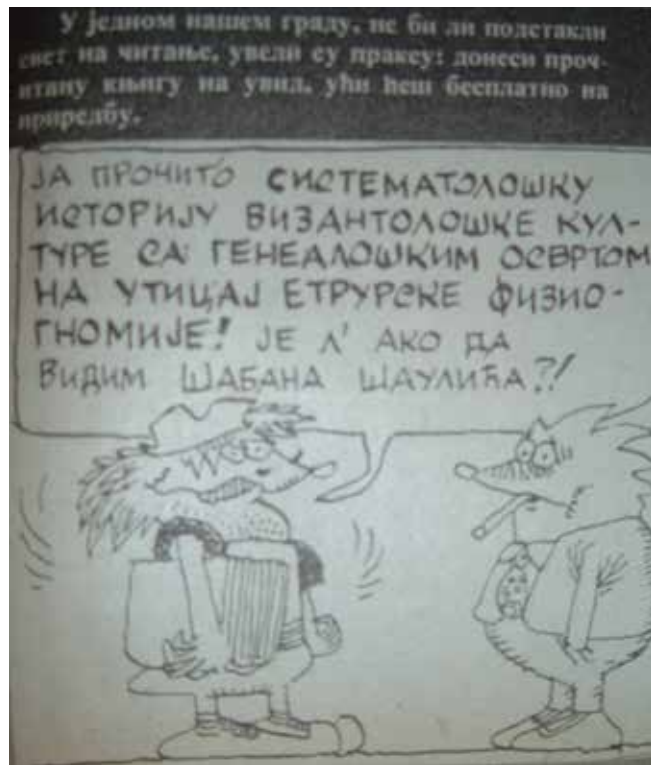 У једном нашем граду, не би ли подстакли
свет на читање, увели су праксу: донеси проч-
итану књигу на увид, ући ћеш бесплатно на
приредбу.
ЈА ПРОЧИТО СИСТЕМАТОЛОШКУ
ИСТОРИЈУ ВИЗАНТОЛОШКЕ КУЛ-
ТУРЕ СА ГЕНЕАЛОШКИМ ОСВРТОМ
НА УТИЦАЈ ЕТРУРСКЕ ФИЗИО-
ГНОМИЈЕ! ЈЕ Л' АКО ДА
ВИДИМ ШАБАНА ШАУЛИЋА?!